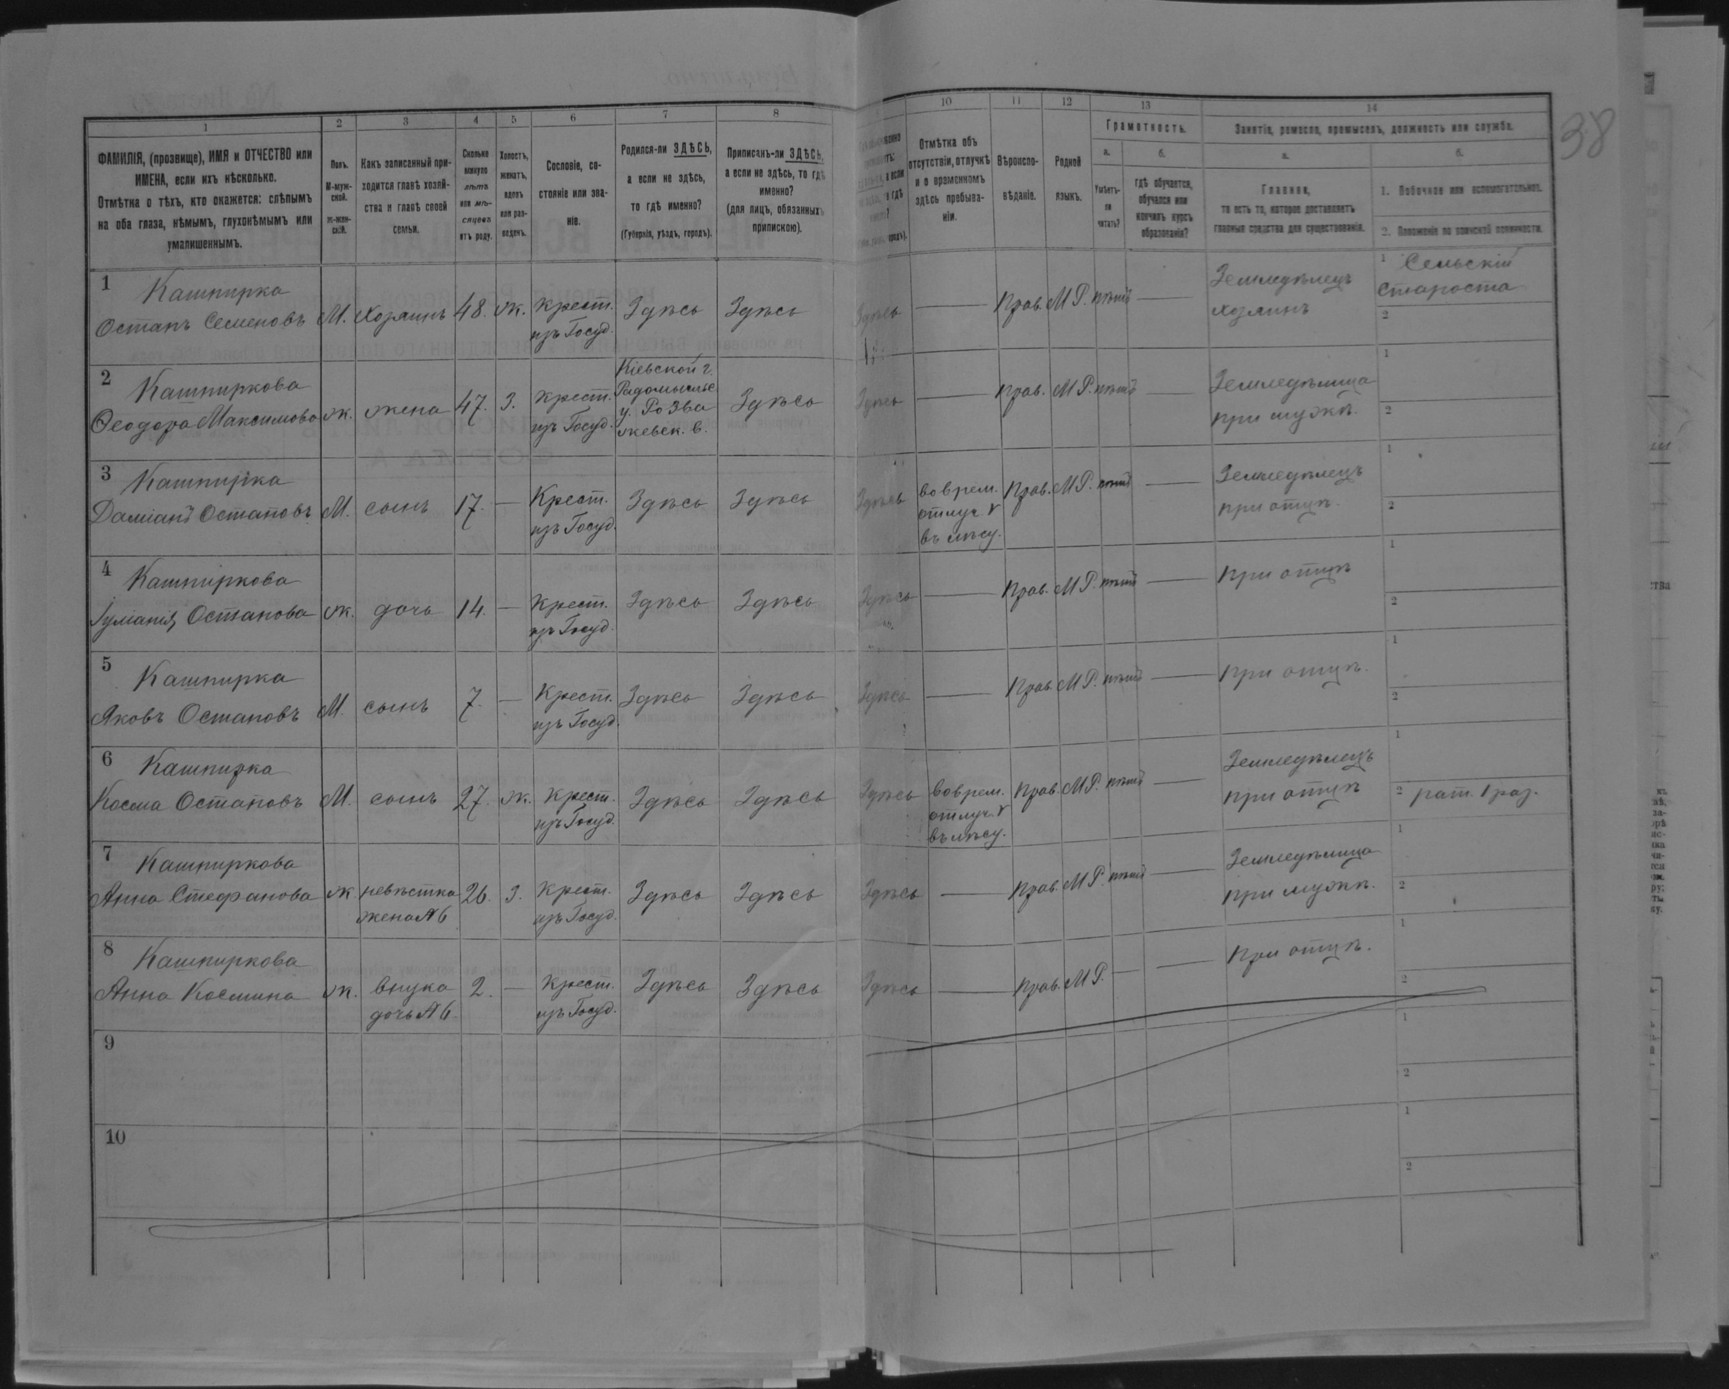 38
1 2 3 4 5 6 7 8 10 11 12 13 14
ФАМИЛІЯ, (прозвище), ИМЯ и ОТЧЕСТВО или
ИМЕНА, если ихъ нѣсколько.
Отмѣтка о тѣхъ, кто окажется: слѣпымъ
на оба глаза, нѣмымъ, глухонѣмымъ или
умалишеннымъ.
Полъ.
М-муж-
ской.
ж-жен-
скій.
Какъ записанный при-
ходится главѣ хозяй-
ства и главѣ своей
семьи.
Сколько
минуло
лѣтъ
или мѣ-
сяцевъ
отъ роду.
Холостъ,
женатъ,
вдовъ
или раз-
веденъ.
Сословіе, со-
стояніе или зва-
ніе.
Родился-ли ЗДѢСЬ,
а если не здѣсь,
то гдѣ именно?
(Губернія, уѣздъ, городъ).
Приписанъ-ли ЗДѢСЬ,
а если не здѣсь, то гдѣ
именно?
(для лицъ, обязанныхъ
припискою).
Отмѣтка объ
отсутствіи, отлучкѣ
и о временномъ
здѣсь пребыва-
ніи.
Вѣроиспо-
вѣданіе.
Родной
языкъ.
Грамотность.
а.
Умѣетъ-
ли
читать?
б.
гдѣ обучается,
обучался или
кончилъ курсъ
образованія?
Занятіе, ремесло, промыселъ, должность или служба.
а.
Главное,
то есть то, которое доставляетъ
главныя средства для существованія.
б.
1. Побочное или вспомогательное.
2. Положеніе по воинской повинности.
1 Кашпирка
Остапъ Семеновъ М. хозяинъ 48. ж. Крест. изъ Госуд. Здѣсь Здѣсь Здѣсь — Прав. М.Р. нѣтъ — Земледѣлецъ хозяинъ 1 Сельскій староста 2
2 Кашпиркова
Ѳеодора Максимова ж. жена 47. З. Крест. изъ Госуд. Кіевской г. Радомысльс у. Здѣсь Здѣсь — Прав. М.Р. нѣтъ — Земледѣлица при мужѣ. 1 2
3 Кашпирка
Даміанъ Остаповъ М. сынъ 17. — Крест. изъ Госуд. Здѣсь Здѣсь Здѣсь во врем. отлуч. въ лѣсу. Прав. М.Р. нѣтъ — Земледѣлецъ при отцѣ. 1 2
4 Кашпиркова
Остапова ж. дочь 14. — Крест. изъ Госуд. Здѣсь Здѣсь Здѣсь — Прав. М.Р. нѣтъ — при отцѣ 1 2
5 Кашпирка
Яковъ Остаповъ М. сынъ 7. — Крест. изъ Госуд. Здѣсь Здѣсь Здѣсь — Прав. М.Р. нѣтъ — при отцѣ. 1 2
6 Кашпирка
Косма Остаповъ М. сынъ 27. ж. Крест. изъ Госуд. Здѣсь Здѣсь Здѣсь во врем. отлуч. въ лѣсу. Прав. М.Р. нѣтъ — Земледѣлецъ при отцѣ 1 2 рат. 1 раз.
7 Кашпиркова
Анна Стефанова ж невѣстка жена №6 26. З. Крест. изъ Госуд. Здѣсь Здѣсь Здѣсь — Прав. М.Р. нѣтъ — Земледѣлица при мужѣ. 1 2
8 Кашпиркова
Анна Космина ж. внука дочь №6 2. — Крест. изъ Госуд. Здѣсь Здѣсь Здѣсь — Прав. М.Р. — — При отцѣ. 1 2
9 1 2
10 1 2